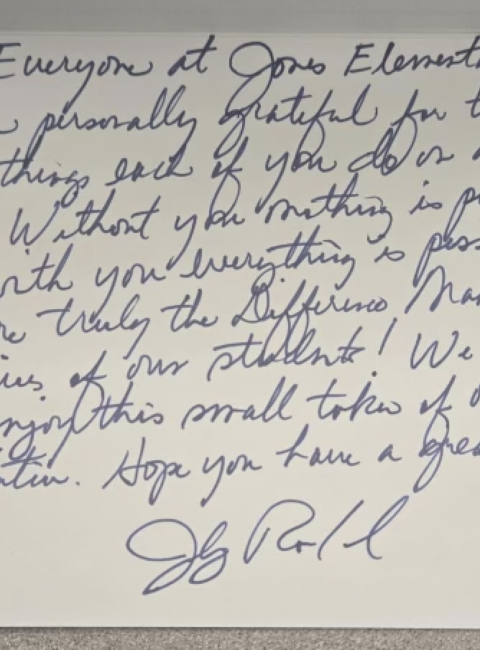 Everyone at Jones Element
personally grateful for t
things each of you do on a
Without you nothing is p
with you everything is poss
re truly the Difference Ma
ives of our students! We
njoy this small token of o
Hope you have a grea